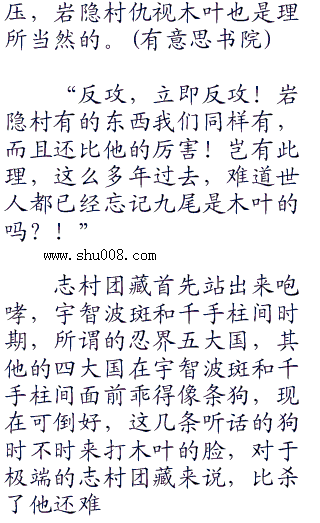 压，岩隐村仇视木叶也是理
所当然的。(有意思书院)
“反攻，立即反攻！岩
隐村有的东西我们同样有，
而且还比他的厉害！岂有此
理，这么多年过去，难道世
人都已经忘记九尾是木叶的
吗？！”
www.shu008.com
志村团藏首先站出来咆
哮，宇智波斑和千手柱间时
期，所谓的忍界五大国，其
他的四大国在宇智波斑和千
手柱间面前乖得像条狗，现
在可倒好，这几条听话的狗
时不时来打木叶的脸，对于
极端的志村团藏来说，比杀
了他还难